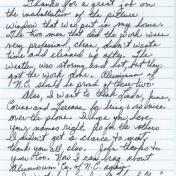 Thanks for a great job on
the installation of the picture
window that was put in my home.
The two men that did the work were
very professional, clean, didn't waste
time and cleaned up after. The
weather was stormy and hot but they
got the work done. Aluminum of
N.C. should be proud of these two
Also, I want to thank Linda, June,
and Teresa for being so nice
over the phone. I hope you have
your names right. As for the others
I didn't get a chance to meet,
thank you all, also. John, thanks to
you too. Now I can brag about
Aluminum Co. of N.C. again